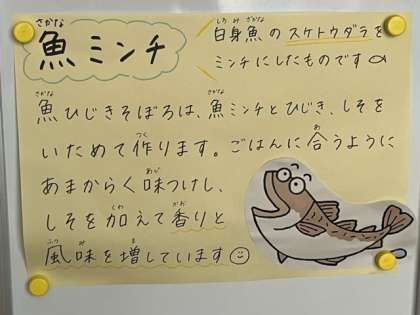 魚ミンチ
白身魚のスケトウダラを
ミンチにしたものです
魚ひじきそぼろは、魚ミンチとひじき、しそを
いためて作ります。ごはんに合うように
あまからく味つけし、
しそを加えて香りと
風味を増しています